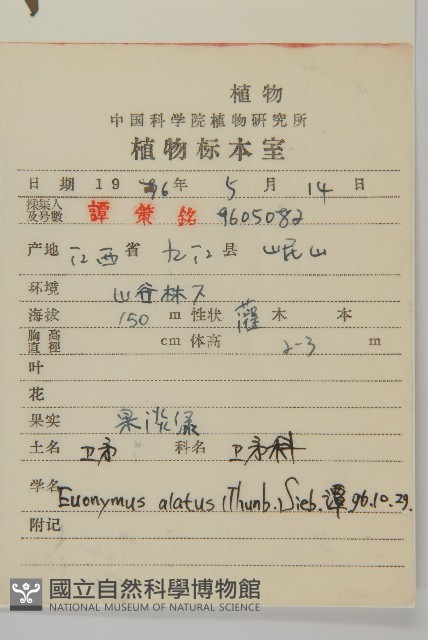 植物
中国科学院植物研究所
植物标本室
日 期 19 96年 5 月 14 日
採集人及号數 譚策銘 9605082
产地 江西省 九江县 岷山
环境 山谷林下
海拔 150 m 性状 灌木 本
胸高直徑 cm 体高 2-3 m
叶
花
果实 果淡绿
土名 卫矛 科名 卫矛科
学名 Euonymus alatus (Thunb.) Sieb. 譚 96.10.29.
附记
國立自然科學博物館
NATIONAL MUSEUM OF NATURAL SCIENCE